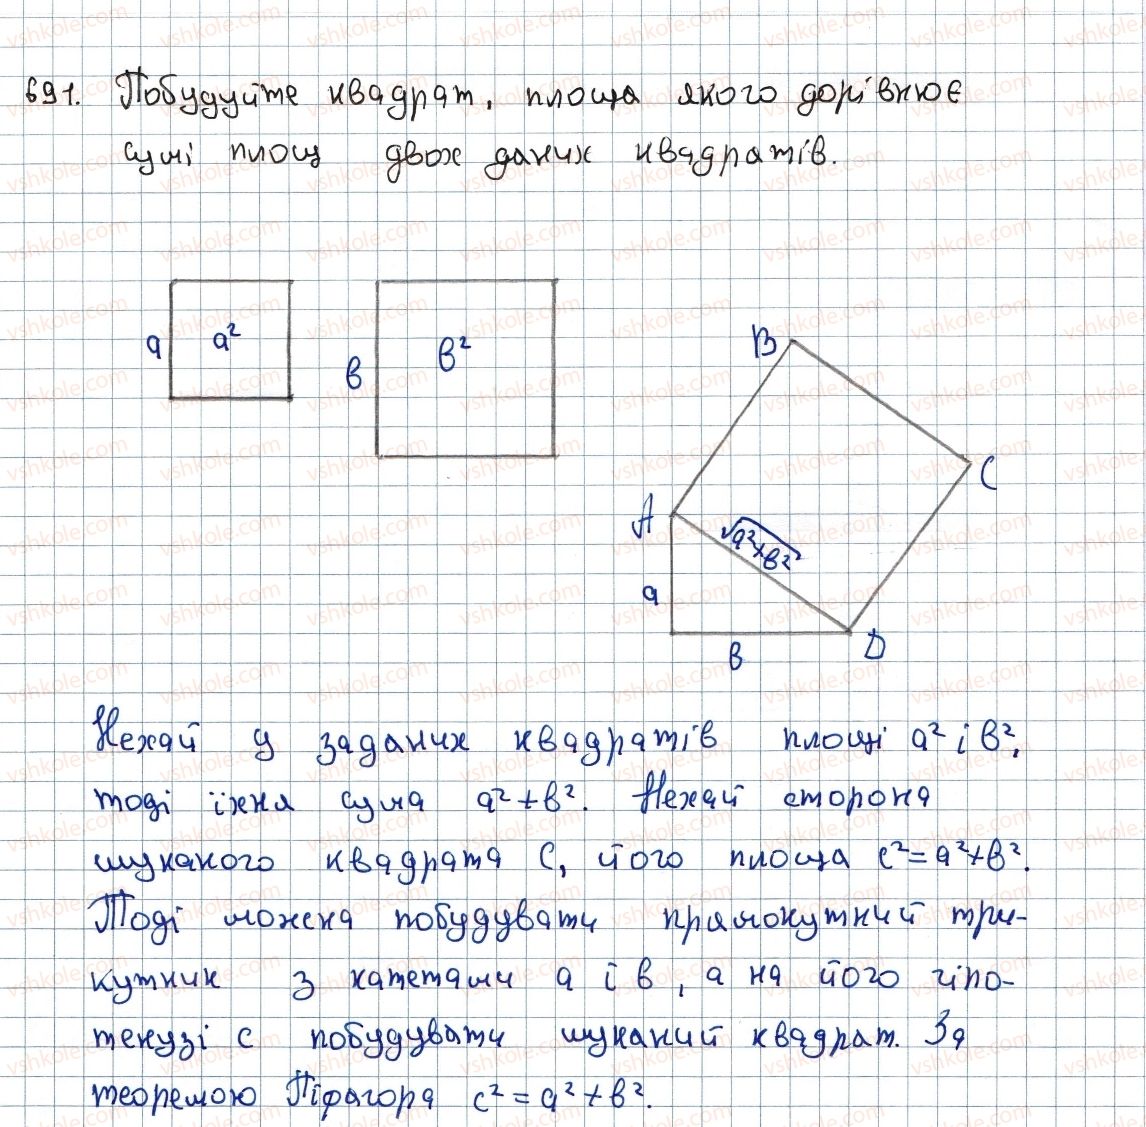 691. Побудуйте квадрат, площа якого дорівнює
сумі площ двох даних квадратів.
a
a²
в
в²
B
C
A
√a²+в²
a
в
D
Нехай у заданих квадратів площі a² і в²,
тоді їхня сума a²+в². Нехай сторона
шуканого квадрата C, його площа c²=a²+в².
Тоді можна побудувати прямокутний три-
кутник з катетами a і в, а на його гіпо-
тенузі c побудувати шуканий квадрат. За
теоремою Піфагора c²=a²+в².
vshkole.com